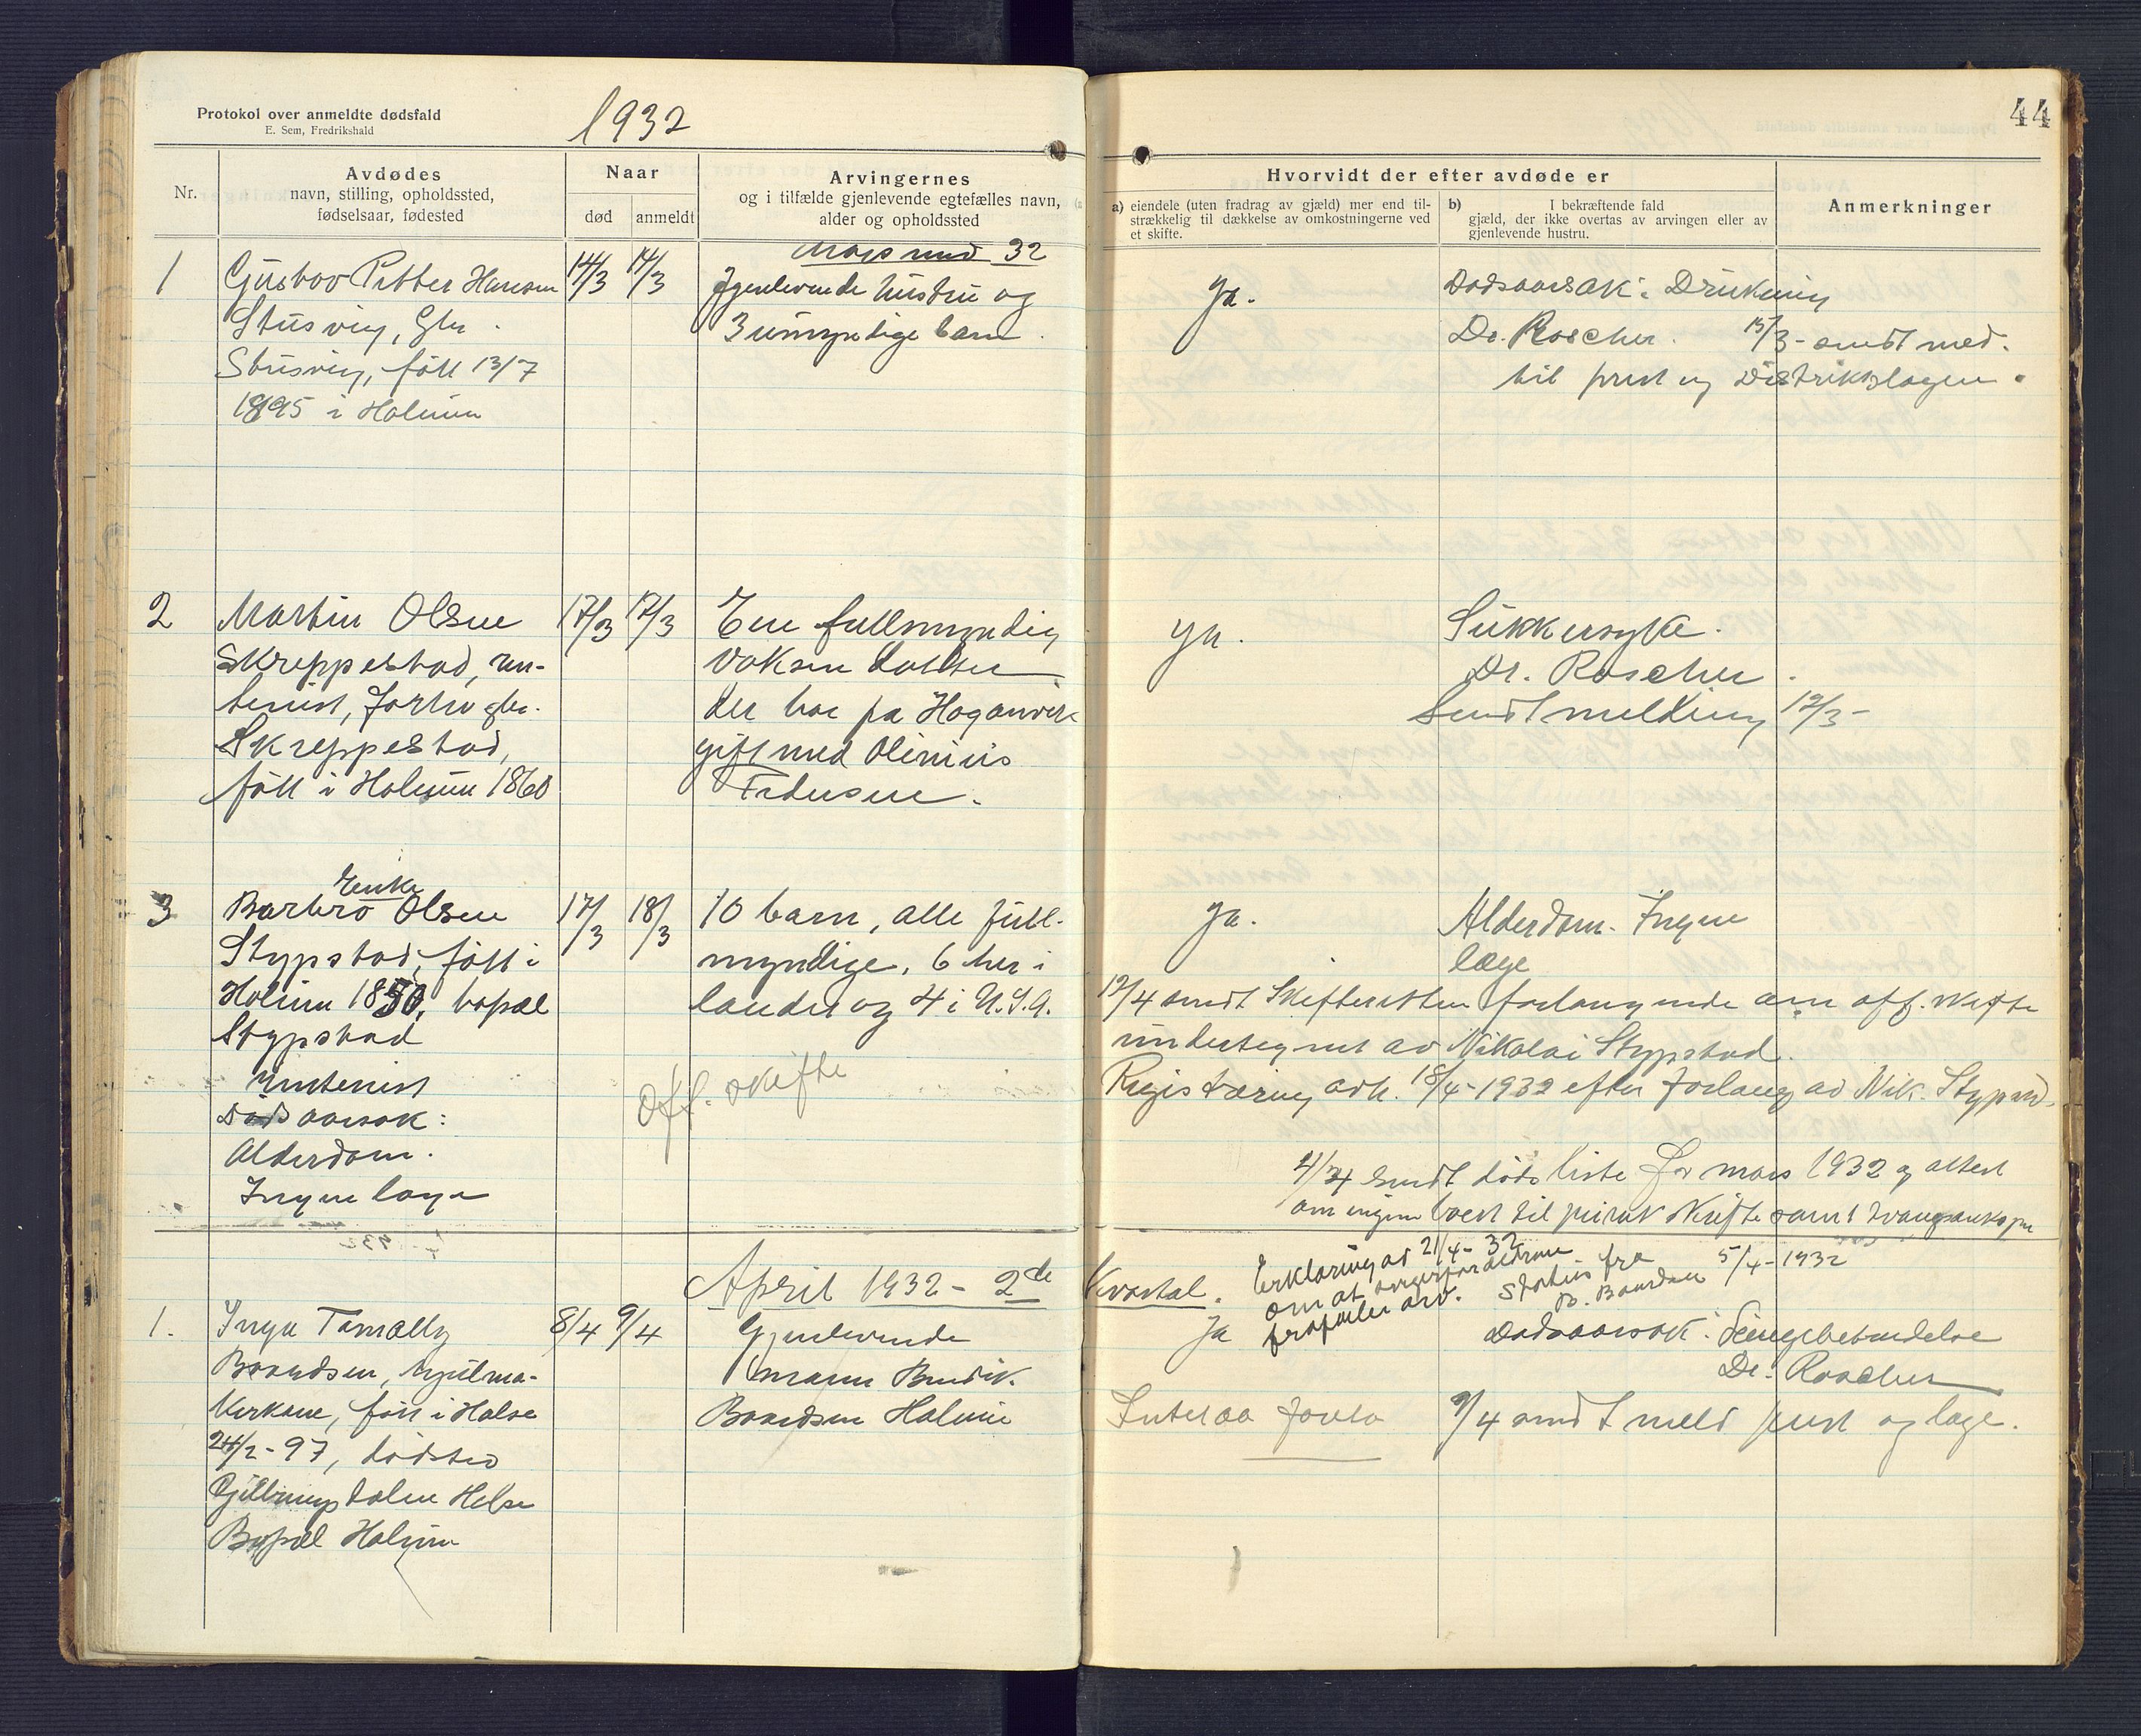 Protokol over anmeldte dødsfald
E. Sem, Fredrikshald
1932
44
Nr.
Avdødes
navn, stilling, opholdssted,
fødselsaar, fødested
Naar
død
anmeldt
Arvingernes
og i tilfælde gjenlevende egtefælles navn,
alder og opholdssted
Hvorvidt der efter avdøde er
a) eiendele (uten fradrag av gjæld) mer end til-
strækkelig til dækkelse av omkostningerne ved
et skifte.
b) I bekræftende fald
gjæld, der ikke overtas av arvingen eller av
gjenlevende hustru.
Anmerkninger
Mars mnd 32
1
Gustav Petter Hansen
Stusvig, Gbr.
Stusvig, født 13/7
1895 i Holum
14/3
14/3
Igenlevende hustru og
3 umyndige barn.
Ja.
Dødsaarsak: Drukning
Dr. Roscher. 15/3 - sendt med.
til prest og Distriktslægen.
2
Martin Olsen
Skreppestad, en-
kemann, gbr.
Skreppestad,
født i Holum 1860
17/3
17/3
Ene fullmyndig
voksen datter
der bor på
gift med Olinius
Pedersen.
Ja.
Sukkersyke.
Dr. Roscher.
Sendt melding 19/3 -
3
Enke
Barbro Olsen
Stypstad, født i
Holum 1850, bopæl
Stypstad
Dødsaarsak:
Alderdom.
Ingen læge
17/3
18/3
10 barn, alle full-
myndige, 6 her i
landet og 4 i U.S.A.
Off. skifte
Ja.
Alderdom. Ingen
læge
12/4 sendt Skifteretten forlangende om off. skifte
undertegnet av Nikolai Stypstad.
Registrering avh. 18/4-1932 efter forlang av Nik. Stypstd.
4/4 sendt dødsliste for mars 1932 og attest
om ingen boer til privat skifte samt
5/4 - 1932
April 1932 - 2de Kvartal.
Erklæring av 21/4 - 32
om at
frafaller arv.
fra
B. Baardsen
1.
Inga Tomally
Baardsen,
født i Halse
24/2 - 97, dødsted
Halse
Bopæl Holum
8/4
9/4
Gjenlevende
mann Bendik
Baardsen Holum
Ja
Dødsaarsak: Lungebetendelse
Dr. Roscher
9/4 sendt meld prest og læge.